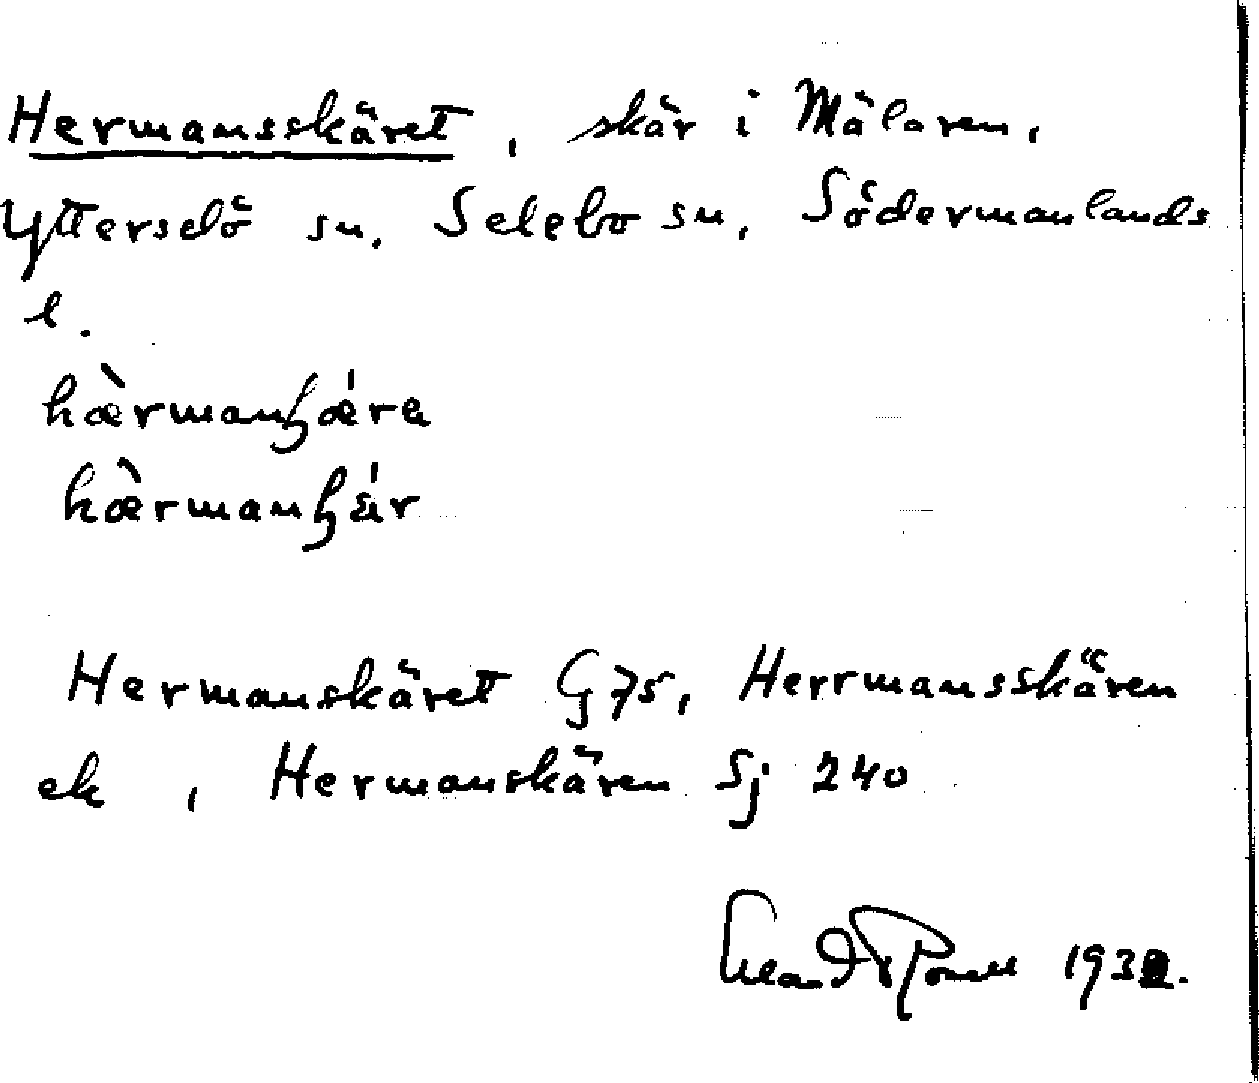 Hermansskäret, skär i Mälaren,
Ytterselö sn, Selebo sn, Södermanlands
l.
hæ̀rmanʂǽra
hæ̀rmanʂä́r
Hermanskäret G 75, Herrmansskären
ek, Hermanskären Sj 240
193